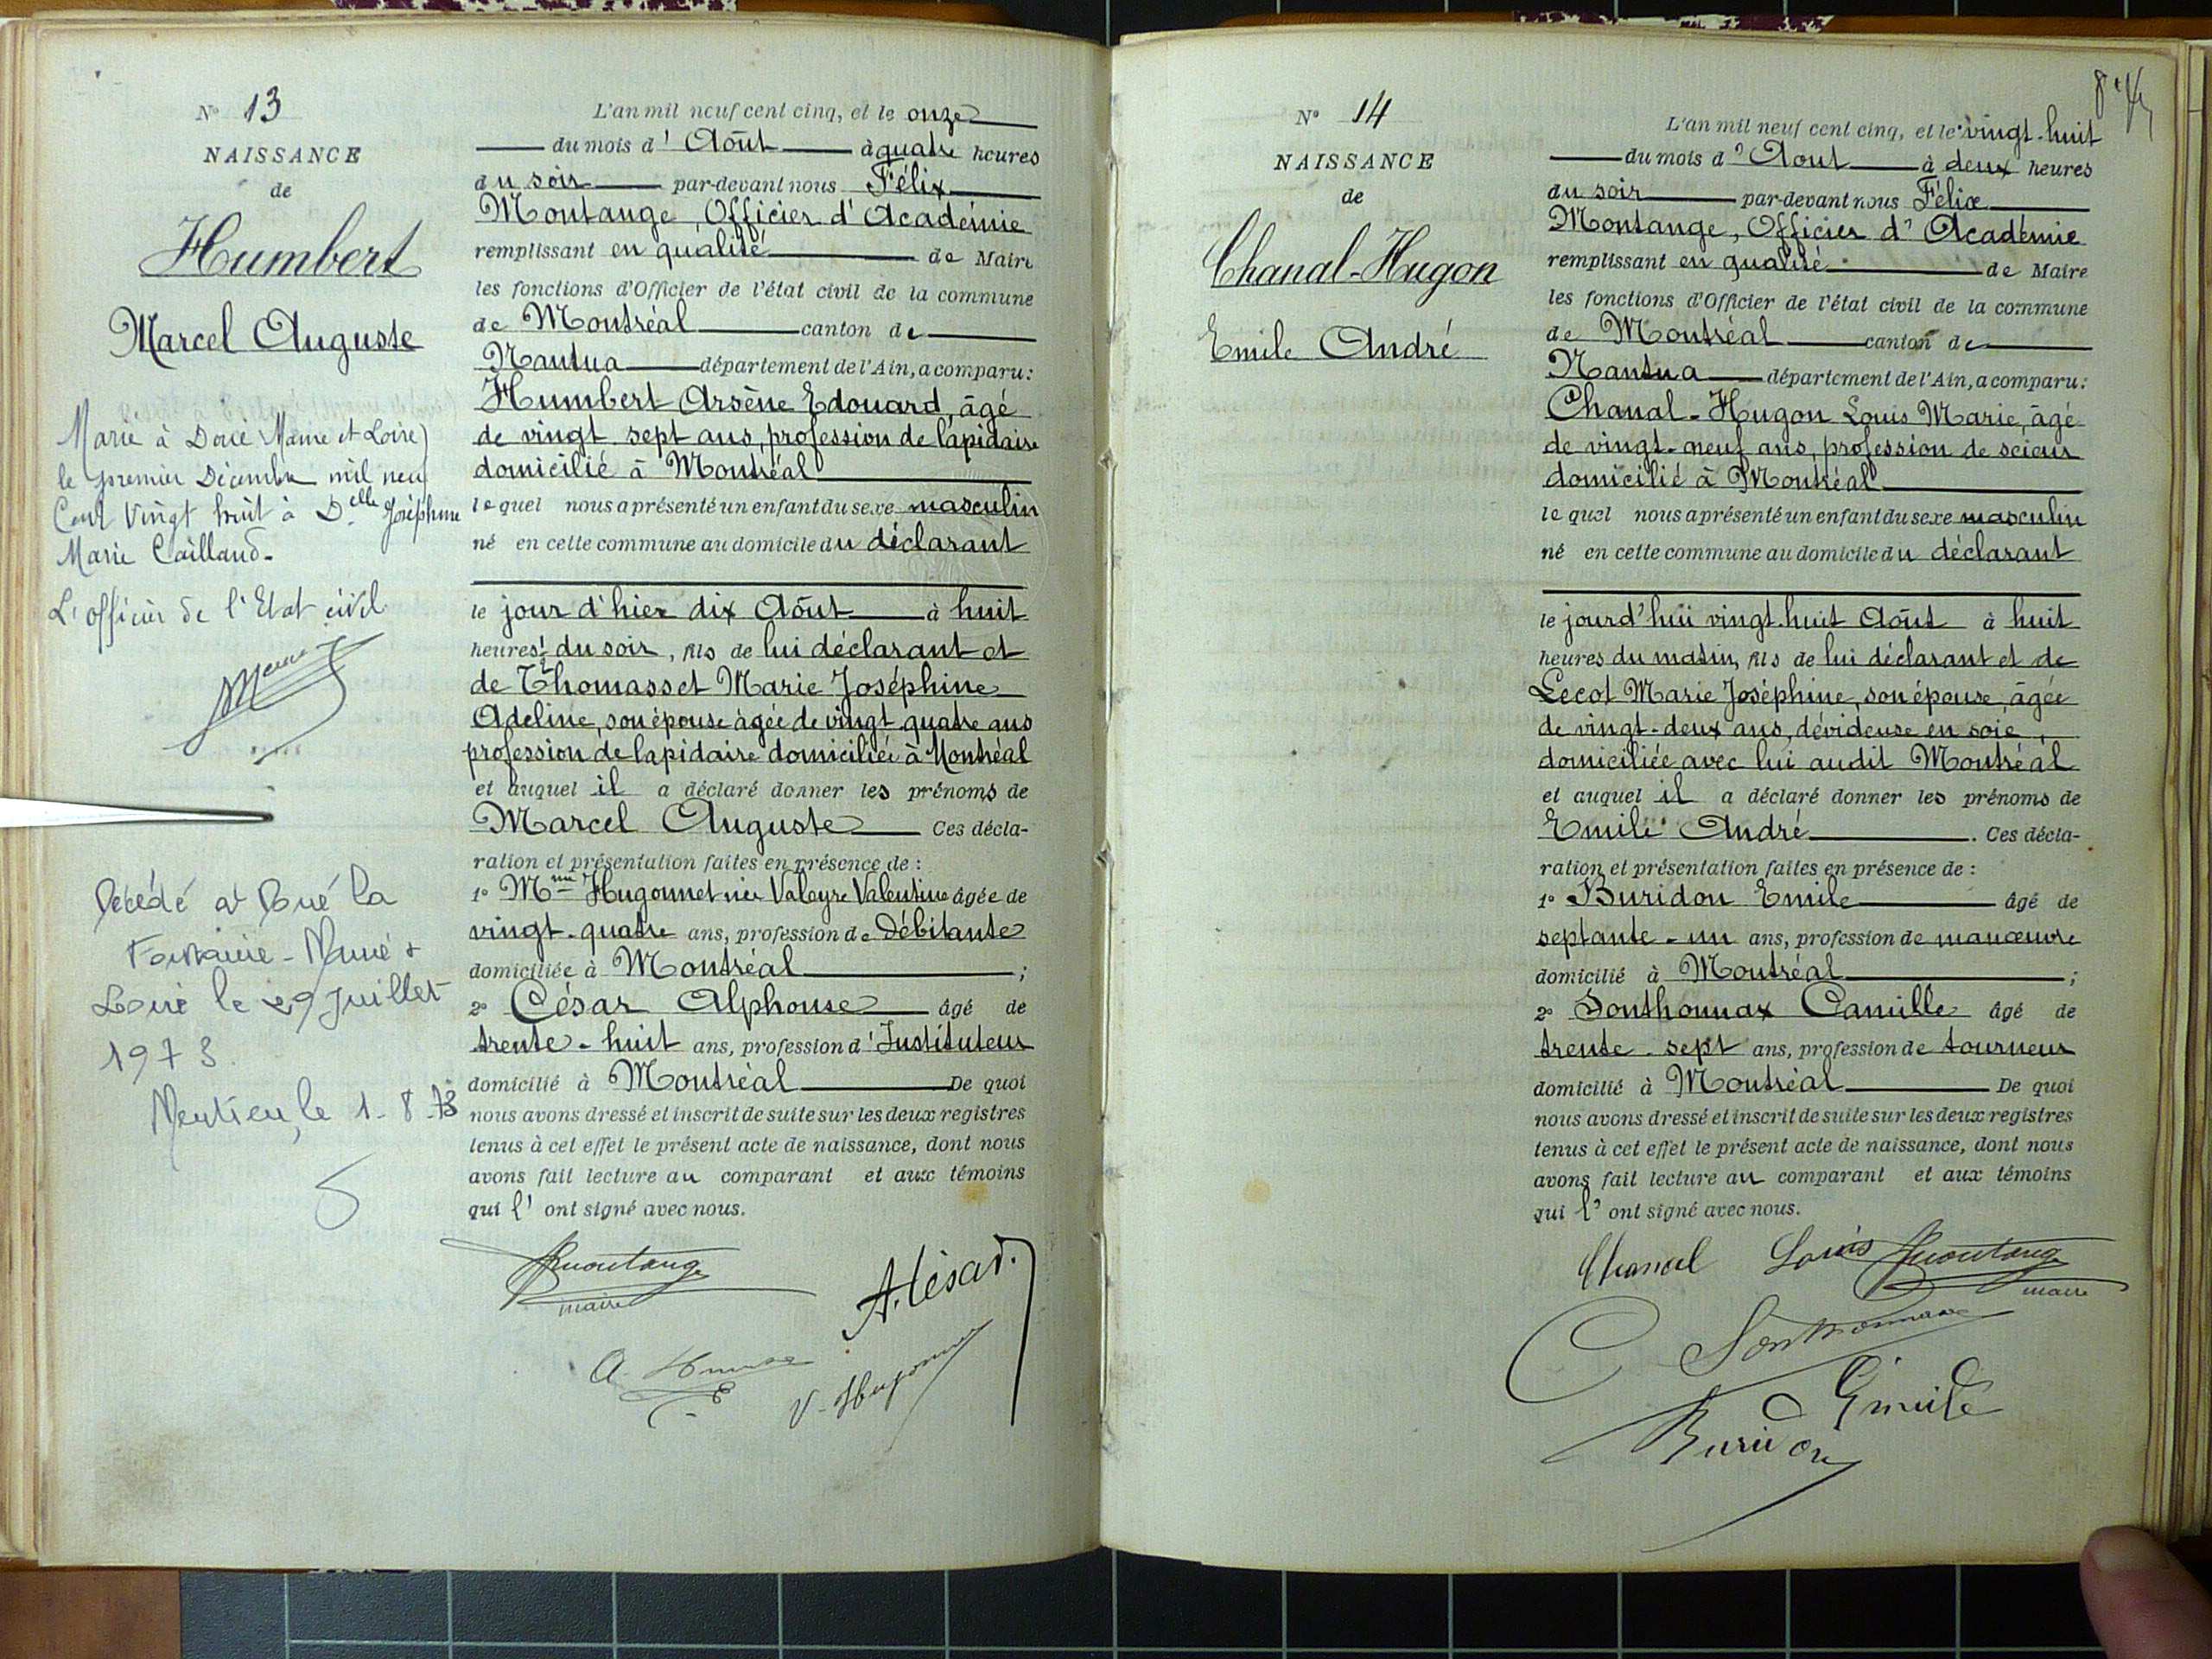 N° 13
NAISSANCE
de
Humbert
Marcel Auguste
Marié à Doué (Maine et Loire)
le premier Décembre mil neuf
Cent Vingt huit à Delle Joséphine
Marie Caillaud-
L'officier de l'Etat civil
Décédé à Doué la
Fontaine - Maine &
Loire le 29 Juillet
1973.
le 1-8-73
L'an mil neuf cent cinq, et le onze
du mois d' Août à quatre heures
du soir par-devant nous Félix
Montange, Officier d'Académie
remplissant en qualité de Maire
les fonctions d'Officier de l'état civil de la commune
de Montréal canton de
Nantua département de l'Ain, a comparu:
Humbert Arsène Edouard, âgé
de vingt sept ans, profession de lapidaire
domicilié à Montréal
le quel nous a présenté un enfant du sexe masculin
né en cette commune au domicile du déclarant
le jour d'hier dix Août à huit
heures ½ du soir, fils de lui déclarant et
de Thomasset Marie Joséphine
Adeline, son épouse âgée de vingt quatre ans
profession de lapidaire domiciliée à Montréal
et auquel il a déclaré donner les prénoms de
Marcel Auguste Ces décla-
ration et présentation faites en présence de :
1° Mme Hugonnet née Valeyre Valentine âgée de
vingt-quatre ans, profession de Débitante
domiciliée à Montréal ;
2° César Alphonse âgé de
trente-huit ans, profession d'Instituteur
domicilié à Montréal De quoi
nous avons dressé et inscrit de suite sur les deux registres
tenus à cet effet le présent acte de naissance, dont nous
avons fait lecture au comparant et aux témoins
qui l' ont signé avec nous.
Montange
maire
A. César.
V. Hugonnet
N° 14
NAISSANCE
de
Chanal-Hugon
Emile André
L'an mil neuf cent cinq, et le vingt-huit
du mois d' Aout à deux heures
du soir par-devant nous Félix
Montange, Officier d'Académie
remplissant en qualité de Maire
les fonctions d'Officier de l'état civil de la commune
de Montréal canton de
Nantua département de l'Ain, a comparu:
Chanal-Hugon Louis Marie, âgé
de vingt-neuf ans, profession de scieur
domicilié à Montréal
le quel nous a présenté un enfant du sexe masculin
né en cette commune au domicile du déclarant
le jourd'hui vingt-huit Août à huit
heures du matin, fils de lui déclarant et de
Lecot Marie Joséphine, son épouse, âgée
de vingt-deux ans, dévideuse en soie,
domiciliée avec lui audit Montréal
et auquel il a déclaré donner les prénoms de
Emile André. Ces décla-
ration et présentation faites en présence de :
1° Buridon Emile âgé de
septante-un ans, profession de manœuvre
domicilié à Montréal ;
2° Sonthonnax Camille âgé de
trente-sept ans, profession de tourneur
domicilié à Montréal De quoi
nous avons dressé et inscrit de suite sur les deux registres
tenus à cet effet le présent acte de naissance, dont nous
avons fait lecture au comparant et aux témoins
qui l' ont signé avec nous.
Chanal Louis Montange
maire
C Sonthonnax
Emile
Buridon